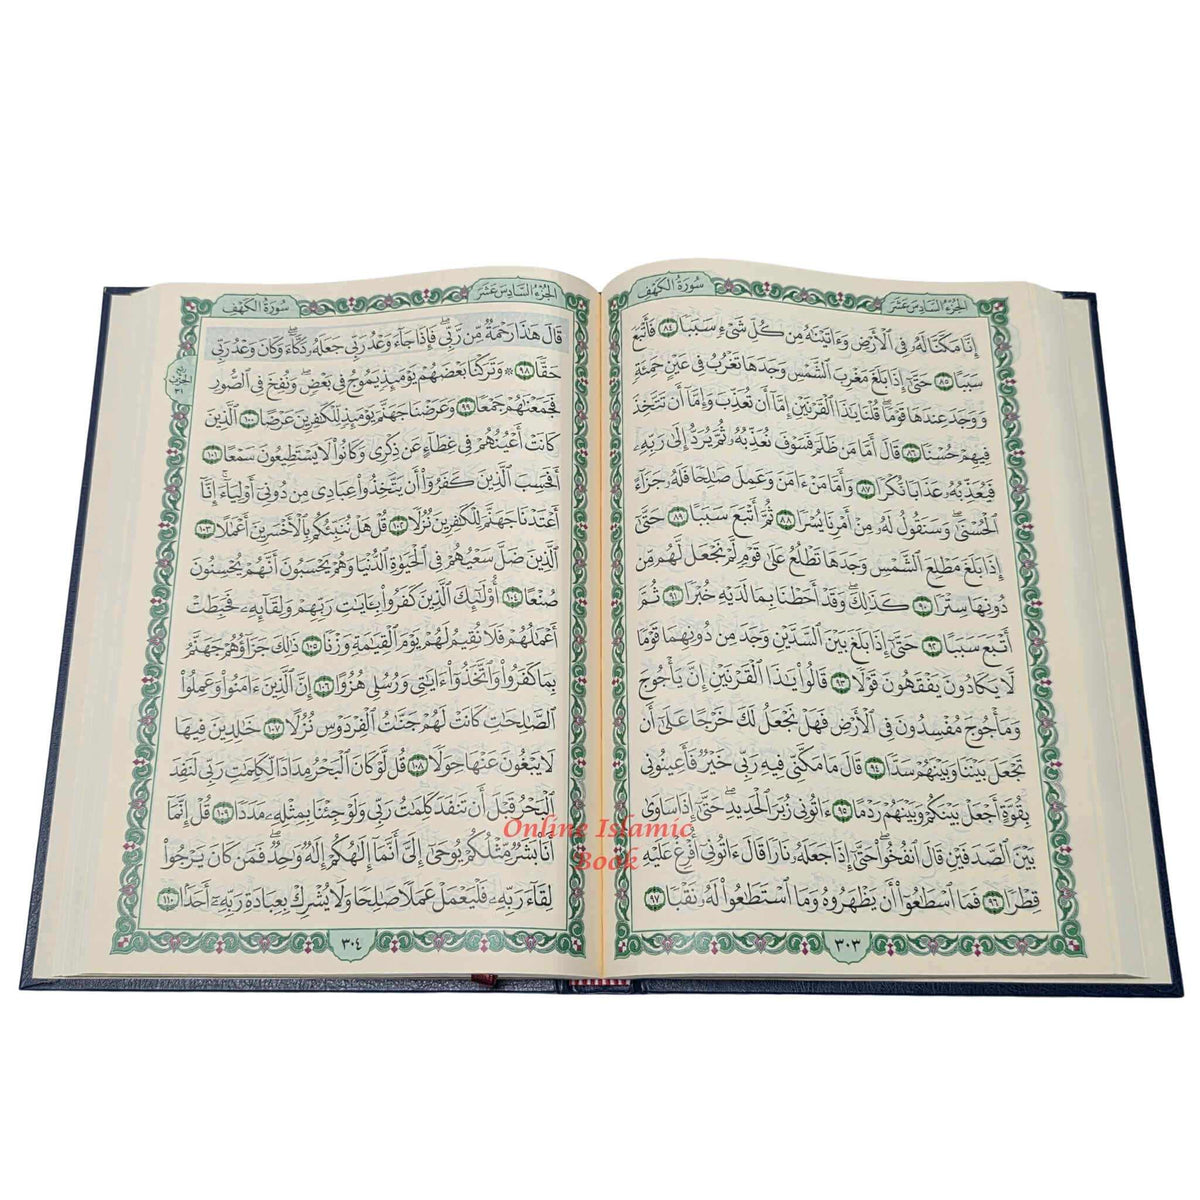 الجزء السادس عشر
سورة الكهف
إِنَّا مَكَّنَّا لَهُۥ فِي ٱلۡأَرۡضِ وَءَاتَيۡنَٰهُ مِن كُلِّ شَيۡءٖ سَبَبٗا ٨٤ فَأَتۡبَعَ
سَبَبًا ٨٥ حَتَّىٰٓ إِذَا بَلَغَ مَغۡرِبَ ٱلشَّمۡسِ وَجَدَهَا تَغۡرُبُ فِي عَيۡنٍ حَمِئَةٖ
وَوَجَدَ عِندَهَا قَوۡمٗاۖ قُلۡنَا يَٰذَا ٱلۡقَرۡنَيۡنِ إِمَّآ أَن تُعَذِّبَ وَإِمَّآ أَن تَتَّخِذَ
فِيهِمۡ حُسۡنٗا ٨٦ قَالَ أَمَّا مَن ظَلَمَ فَسَوۡفَ نُعَذِّبُهُۥ ثُمَّ يُرَدُّ إِلَىٰ رَبِّهِۦ
فَيُعَذِّبُهُۥ عَذَابٗا نُّكۡرٗا ٨٧ وَأَمَّا مَنۡ ءَامَنَ وَعَمِلَ صَٰلِحٗا فَلَهُۥ جَزَآءً
ٱلۡحُسۡنَىٰۖ وَسَنَقُولُ لَهُۥ مِنۡ أَمۡرِنَا يُسۡرٗا ٨٨ ثُمَّ أَتۡبَعَ سَبَبًا ٨٩ حَتَّىٰٓ
إِذَا بَلَغَ مَطۡلِعَ ٱلشَّمۡسِ وَجَدَهَا تَطۡلُعُ عَلَىٰ قَوۡمٖ لَّمۡ نَجۡعَل لَّهُم مِّن
دُونِهَا سِتۡرٗا ٩٠ كَذَٰلِكَۖ وَقَدۡ أَحَطۡنَا بِمَا لَدَيۡهِ خُبۡرٗا ٩١ ثُمَّ
أَتۡبَعَ سَبَبًا ٩٢ حَتَّىٰٓ إِذَا بَلَغَ بَيۡنَ ٱلسَّدَّيۡنِ وَجَدَ مِن دُونِهِمَا قَوۡمٗا
لَّا يَكَادُونَ يَفۡقَهُونَ قَوۡلٗا ٩٣ قَالُواْ يَٰذَا ٱلۡقَرۡنَيۡنِ إِنَّ يَأۡجُوجَ
وَمَأۡجُوجَ مُفۡسِدُونَ فِي ٱلۡأَرۡضِ فَهَلۡ نَجۡعَلُ لَكَ خَرۡجًا عَلَىٰٓ أَن
تَجۡعَلَ بَيۡنَنَا وَبَيۡنَهُمۡ سَدّٗا ٩٤ قَالَ مَا مَكَّنِّي فِيهِ رَبِّي خَيۡرٞ فَأَعِينُونِي
بِقُوَّةٍ أَجۡعَلۡ بَيۡنَكُمۡ وَبَيۡنَهُمۡ رَدۡمًا ٩٥ ءَاتُونِي زُبَرَ ٱلۡحَدِيدِۖ حَتَّىٰٓ إِذَا سَاوَىٰ
بَيۡنَ ٱلصَّدَفَيۡنِ قَالَ ٱنفُخُواْۖ حَتَّىٰٓ إِذَا جَعَلَهُۥ نَارٗا قَالَ ءَاتُونِيٓ أُفۡرِغۡ عَلَيۡهِ
قِطۡرٗا ٩٦ فَمَا ٱسۡطَٰعُوٓاْ أَن يَظۡهَرُوهُ وَمَا ٱسۡتَطَٰعُواْ لَهُۥ نَقۡبٗا ٩٧
٣٠٣
الجزء السادس عشر
سورة الكهف
قَالَ هَٰذَا رَحۡمَةٞ مِّن رَّبِّيۖ فَإِذَا جَآءَ وَعۡدُ رَبِّي جَعَلَهُۥ دَكَّآءَۖ وَكَانَ وَعۡدُ رَبِّي
حَقّٗا ٩٨ ۞ وَتَرَكۡنَا بَعۡضَهُمۡ يَوۡمَئِذٖ يَمُوجُ فِي بَعۡضٖۖ وَنُفِخَ فِي ٱلصُّورِ
فَجَمَعۡنَٰهُمۡ جَمۡعٗا ٩٩ وَعَرَضۡنَا جَهَنَّمَ يَوۡمَئِذٖ لِّلۡكَٰفِرِينَ عَرۡضًا ١٠٠ ٱلَّذِينَ
كَانَتۡ أَعۡيُنُهُمۡ فِي غِطَآءٍ عَن ذِكۡرِي وَكَانُواْ لَا يَسۡتَطِيعُونَ سَمۡعًا ١٠١
أَفَحَسِبَ ٱلَّذِينَ كَفَرُوٓاْ أَن يَتَّخِذُواْ عِبَادِي مِن دُونِيٓ أَوۡلِيَآءَۚ إِنَّآ
أَعۡتَدۡنَا جَهَنَّمَ لِلۡكَٰفِرِينَ نُزُلٗا ١٠٢ قُلۡ هَلۡ نُنَبِّئُكُم بِٱلۡأَخۡسَرِينَ أَعۡمَٰلًا ١٠٣
ٱلَّذِينَ ضَلَّ سَعۡيُهُمۡ فِي ٱلۡحَيَوٰةِ ٱلدُّنۡيَا وَهُمۡ يَحۡسَبُونَ أَنَّهُمۡ يُحۡسِنُونَ
صُنۡعًا ١٠٤ أُوْلَٰٓئِكَ ٱلَّذِينَ كَفَرُواْ بِـَٔايَٰتِ رَبِّهِمۡ وَلِقَآئِهِۦ فَحَبِطَتۡ
أَعۡمَٰلُهُمۡ فَلَا نُقِيمُ لَهُمۡ يَوۡمَ ٱلۡقِيَٰمَةِ وَزۡنٗا ١٠٥ ذَٰلِكَ جَزَآؤُهُمۡ جَهَنَّمُ
بِمَا كَفَرُواْ وَٱتَّخَذُوٓاْ ءَايَٰتِي وَرُسُلِي هُزُوًا ١٠٦ إِنَّ ٱلَّذِينَ ءَامَنُواْ وَعَمِلُواْ
ٱلصَّٰلِحَٰتِ كَانَتۡ لَهُمۡ جَنَّٰتُ ٱلۡفِرۡدَوۡسِ نُزُلًا ١٠٧ خَٰلِدِينَ فِيهَا
لَا يَبۡغُونَ عَنۡهَا حِوَلٗا ١٠٨ قُل لَّوۡ كَانَ ٱلۡبَحۡرُ مِدَادٗا لِّكَلِمَٰتِ رَبِّي لَنَفِدَ
ٱلۡبَحۡرُ قَبۡلَ أَن تَنفَدَ كَلِمَٰتُ رَبِّي وَلَوۡ جِئۡنَا بِمِثۡلِهِۦ مَدَدٗا ١٠٩ قُلۡ إِنَّمَآ
أَنَا۠ بَشَرٞ مِّثۡلُكُمۡ يُوحَىٰٓ إِلَيَّ أَنَّمَآ إِلَٰهُكُمۡ إِلَٰهٞ وَٰحِدٞۖ فَمَن كَانَ يَرۡجُواْ
لِقَآءَ رَبِّهِۦ فَلۡيَعۡمَلۡ عَمَلٗا صَٰلِحٗا وَلَا يُشۡرِكۡ بِعِبَادَةِ رَبِّهِۦٓ أَحَدَۢا ١١٠
ربع
الحزب
٣١
٣٠٤
Online Islamic
Book